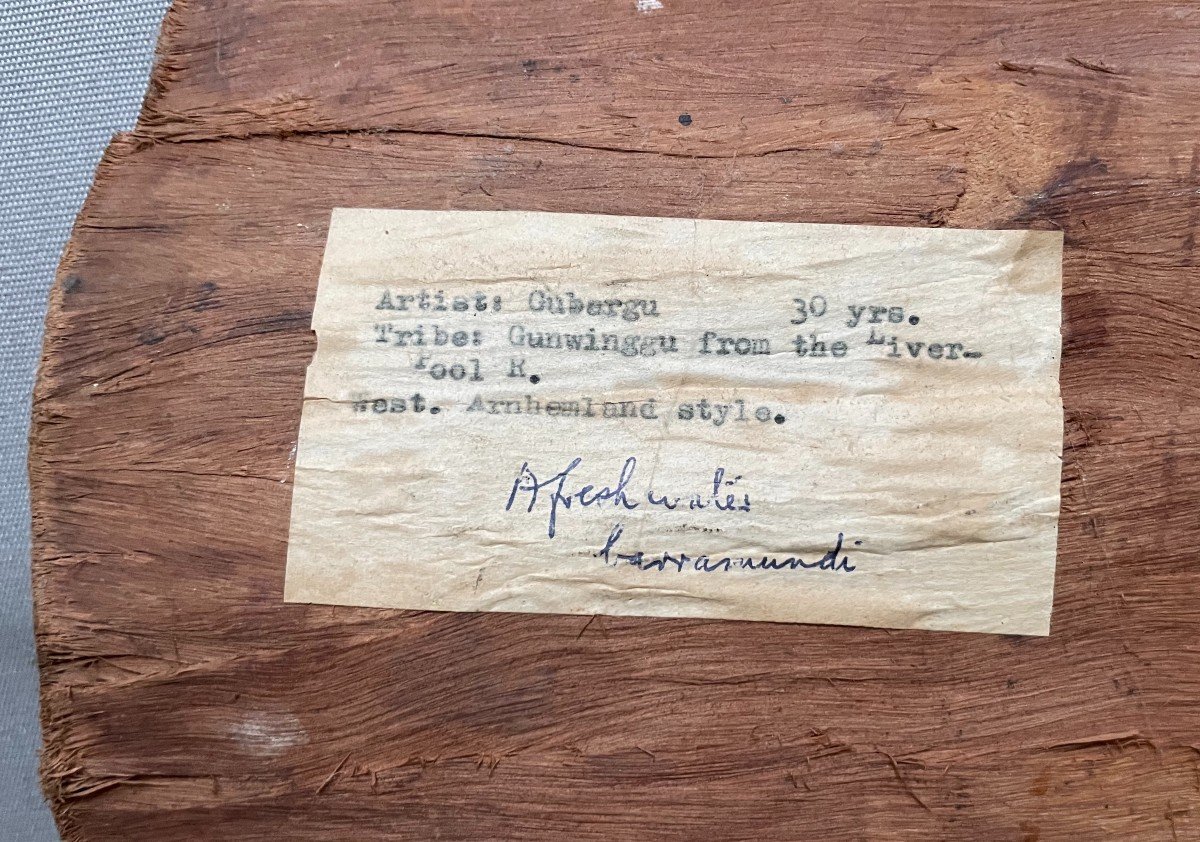 Artist: Gubargu 30 yrs.
Tribe: Gunwinggu from the Liver-
pool R.
West. Arnhemland style.
A freshwater
barramundi